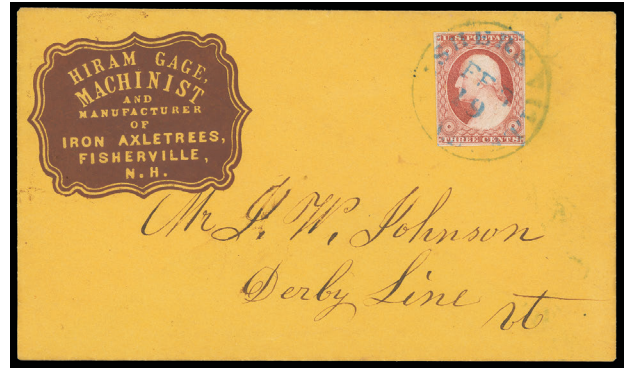 HIRAM GAGE,
MACHINIST
AND
MANUFACTURER
OF
IRON AXLETREES,
FISHERVILLE,
N. H.
U.S. POSTAGE
THREE CENTS
FEB
19
Mr J. W. Johnson
Derby Line
Vt